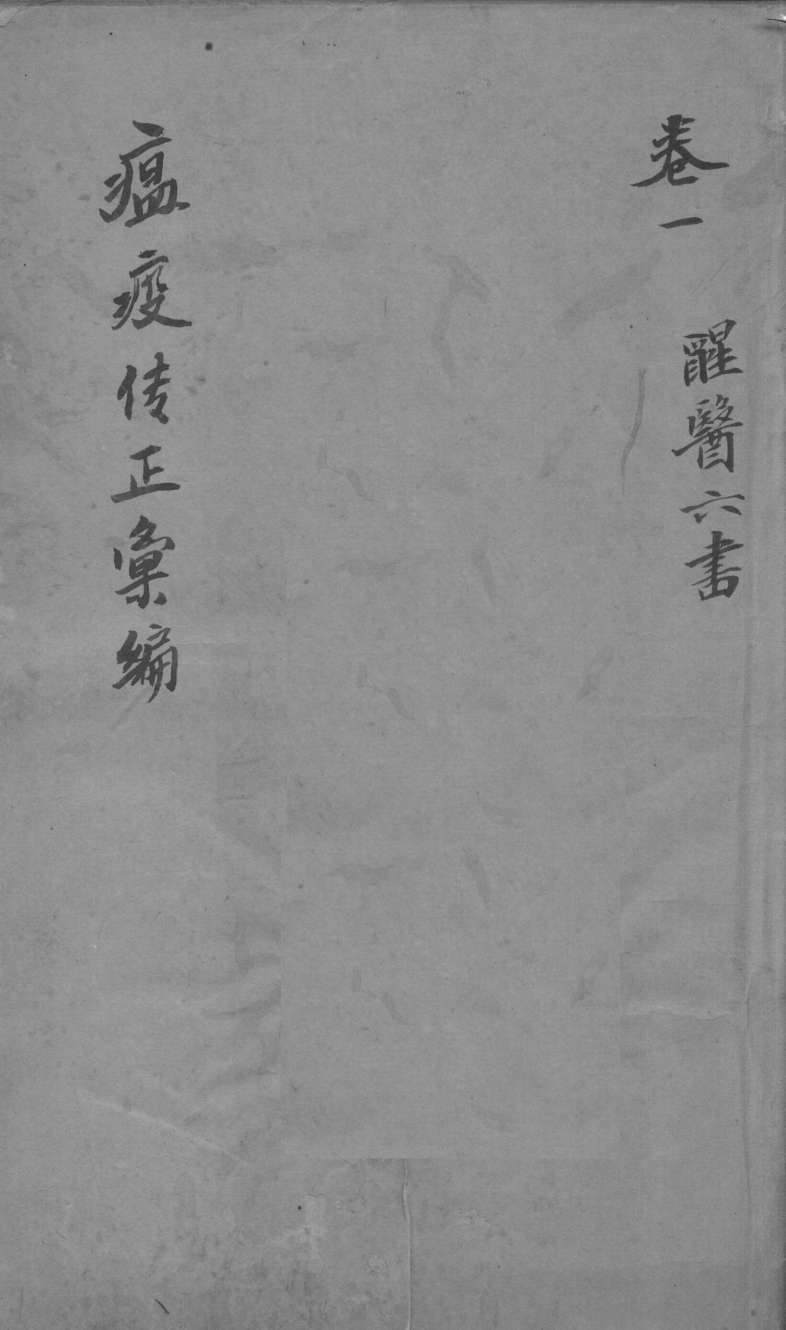 卷一 醒醫六書
瘟疫传正彙編